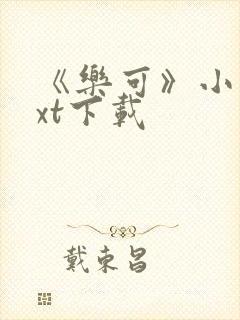 《樂可》小
xt下載
戴東昌